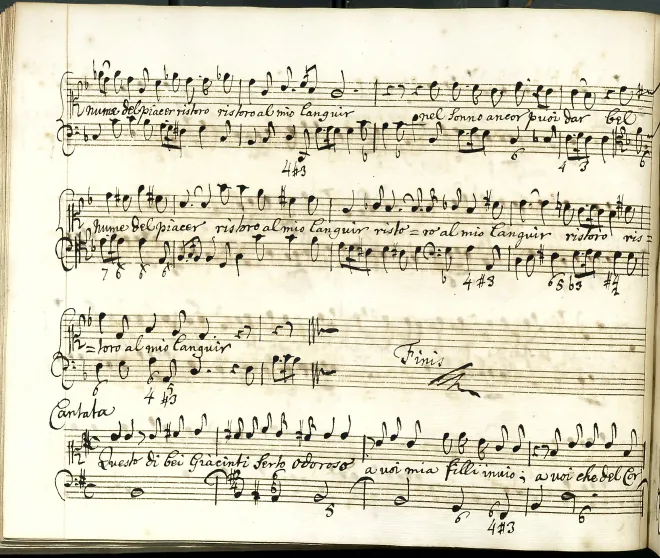 nume del piacer ristoro ristoro al mio languir nel sonno ancor puoi dar bel
6 4 3 6
4 #3
nume del piacer ristoro al mio languir risto = ro al mio languir ristoro ris=
7 6 6 6 6 4 #3 6 5 6 3 #4
=toro al mio languir
Finis
6 4 #3
Cantata
Questo di bei Giacinti serto odoroso a voi mia Filli invio; a voi che del Cor
5 6 6 6
4 #3